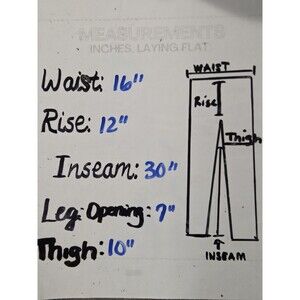 MEASUREMENTS
INCHES, LAYING FLAT
Waist: 16"
Rise: 12"
Inseam: 30"
Leg: Opening: 7"
Thigh: 10"
WAIST
Rise
Thigh
INSEAM